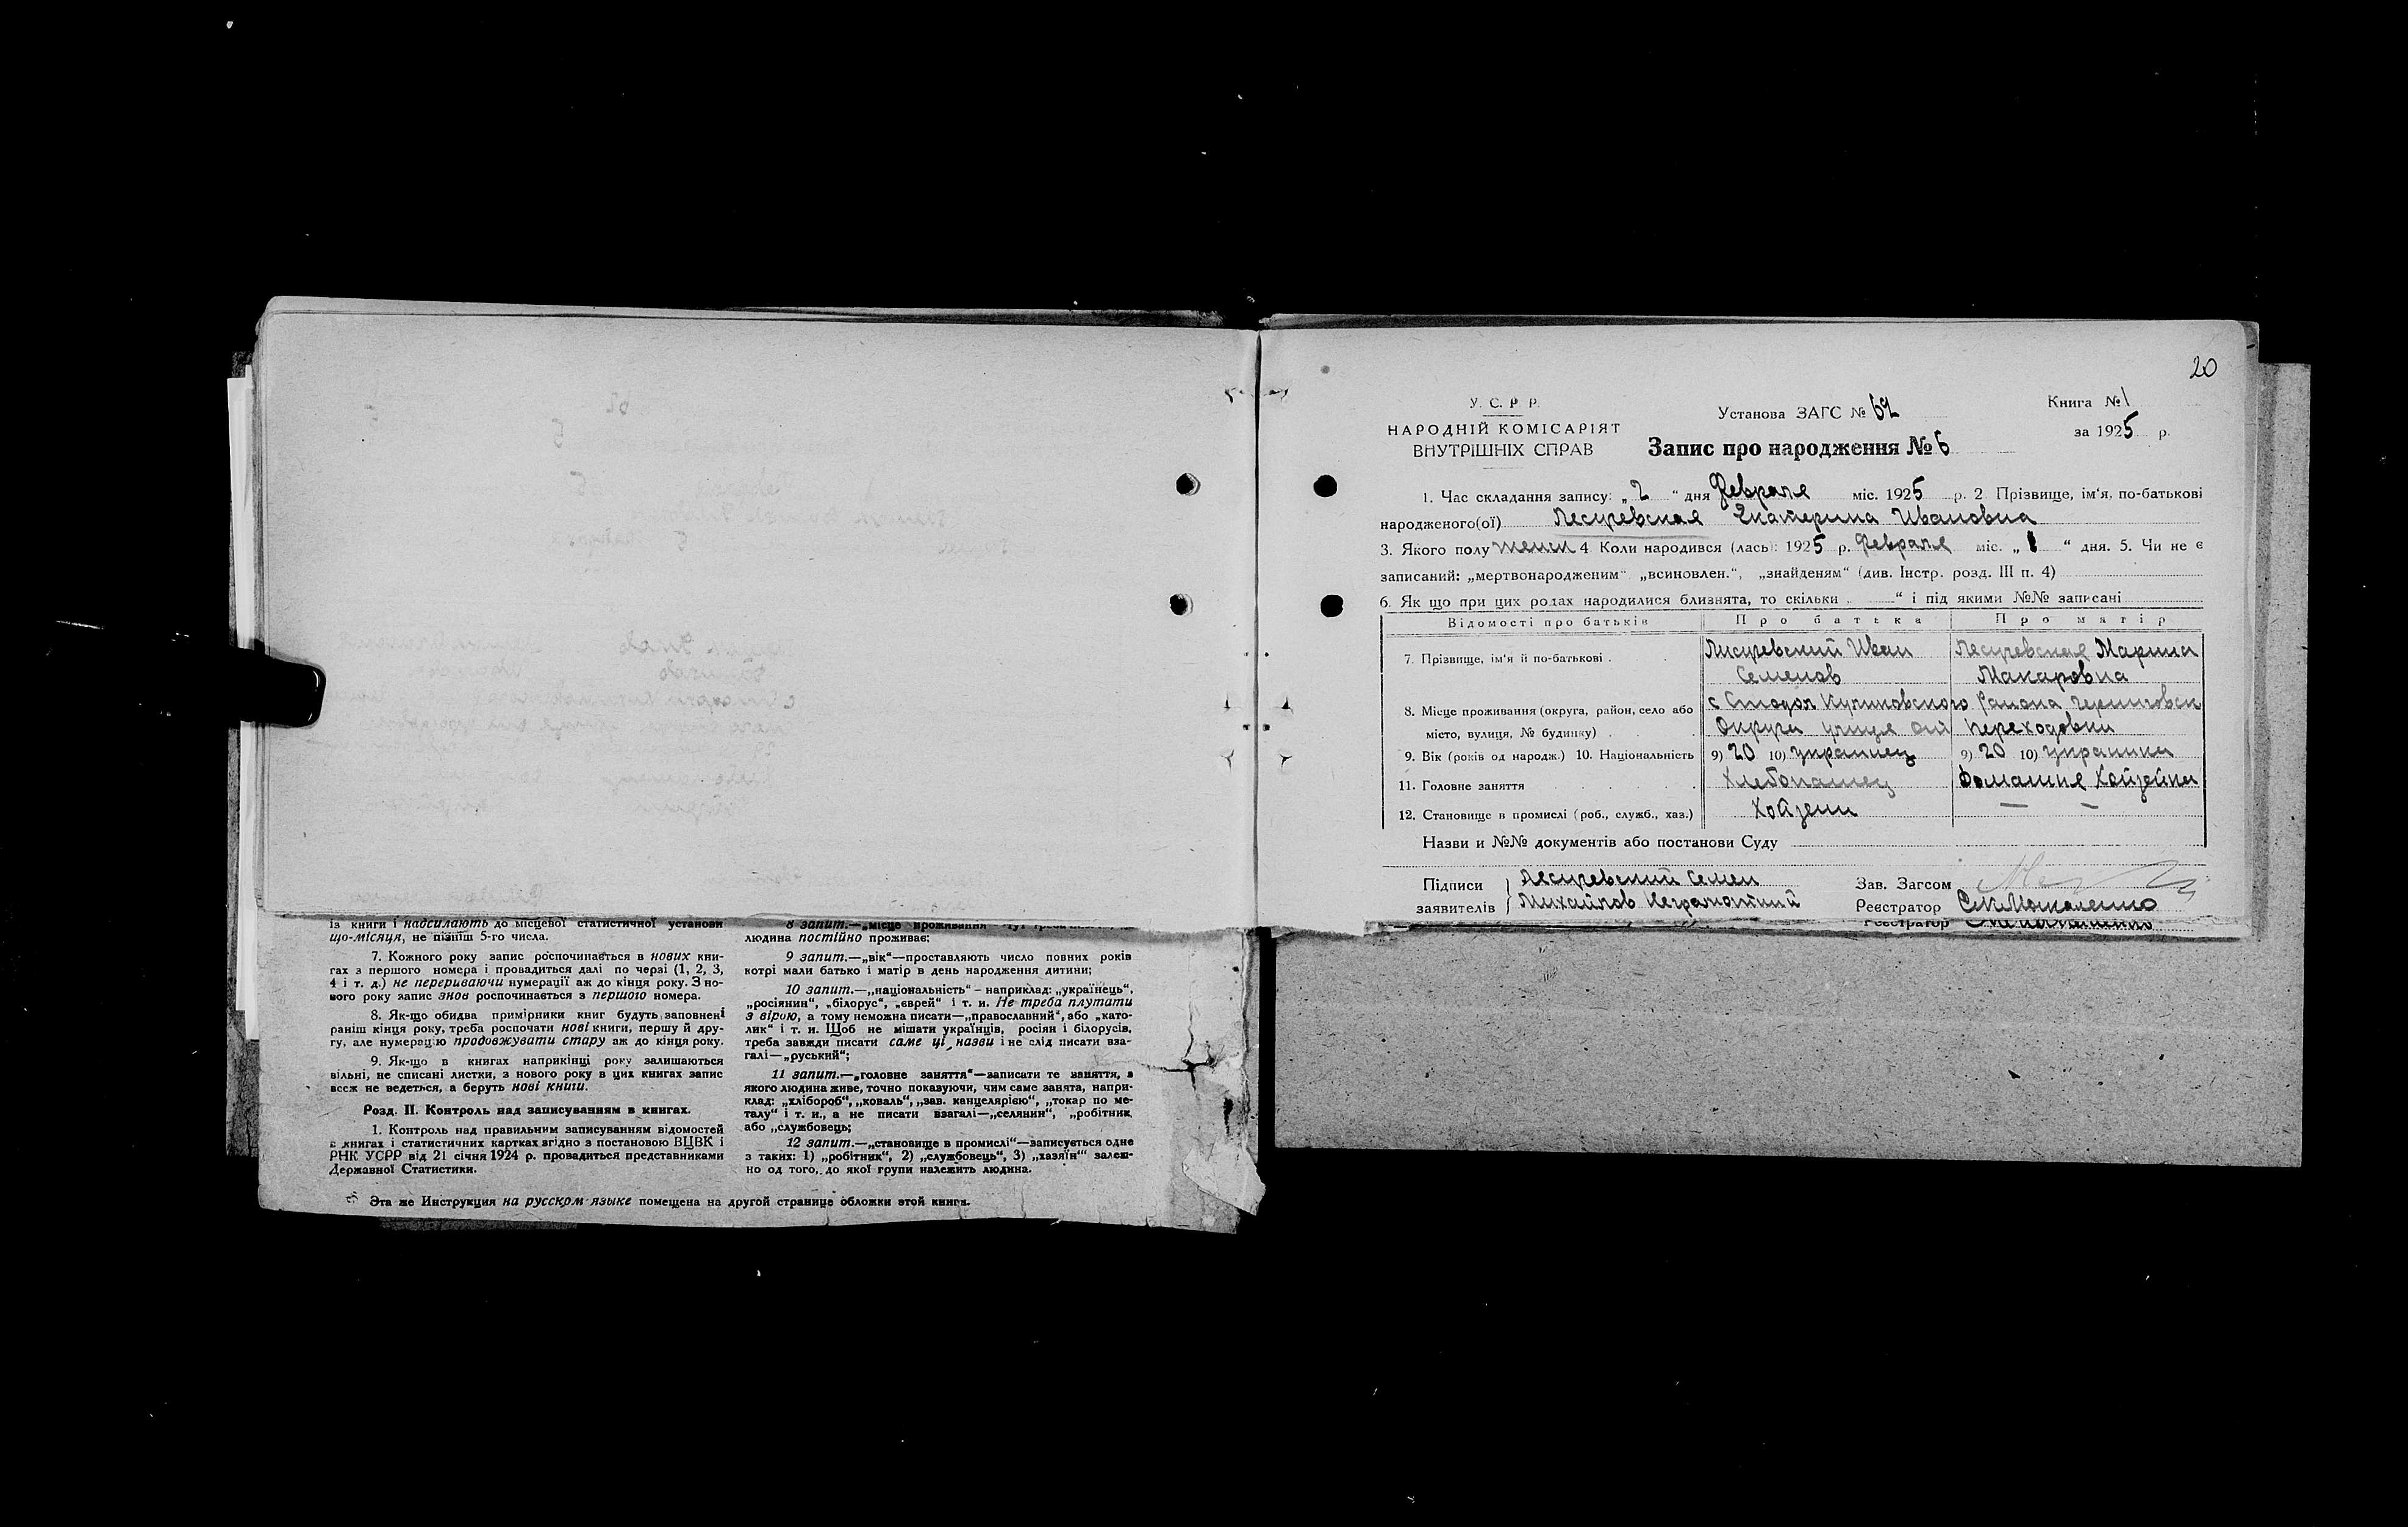 із книги і надсилають до місцевої статистичної установи
що-місяця, не пізніш 5-го числа.
7. Кожного року запис роспочинається в нових кни-
гах з першого номера і провадиться далі по черзі (1, 2, 3,
4 і т. д.) не перериваючи нумерації аж до кінця року. З но-
вого року запис знов роспочинається з першого номера.
8. Як-що обидва примірники книг будуть заповнені
раніш кінця року, треба роспочати нові книги, першу й дру-
гу, але нумерацію продовжувати стару аж до кінця року.
9. Як-що в книгах наприкінці року залишаються
вільні, не списані листки, з нового року в цих книгах запис
всеж не ведеться, а беруть нові книги.
Розд. II. Контроль над записуванням в книгах.
1. Контроль над правильним записуванням відомостей
в книгах і статистичних картках згідно з постановою ВЦВК і
РНК УСРР від 21 січня 1924 р. провадиться представниками
Державної Статистики.
8 запит.—„місце проживання
людина постійно проживає;
9 запит.—„вік“—проставляють число повних років
котрі мали батько і матір в день народження дитини;
10 запит.—„національність“ – наприклад: „українець“,
„росіянин“, „білорус“, „єврей“ і т. и. Не треба плутати
з вірою, а тому неможна писати—„православний“, або „като-
лик“ і т. и. Щоб не мішати українців, росіян і білорусів,
треба завжди писати саме ці назви і не слід писати вза-
галі—„руський“;
11 запит.—„головне заняття“—записати те заняття, з
якого людина живе, точно показуючи, чим саме занята, напри-
клад: „хлібороб“, „коваль“, „зав. канцелярією“, „токар по ме-
талу“ і т. и., а не писати взагалі—„селянин“, „робітник
або „службовець;
12 запит.—„становище в промислі“—записується одне
з таких: 1) „робітник“, 2) „службовець“, 3) „хазяїн“ залеж-
но од того, до якої групи належить людина.
Эта же Инструкция на русском языке помещена на другой странице обложки этой книги.
20
У. С. Р. Р.
НАРОДНІЙ КОМІСАРІЯТ
ВНУТРІШНІХ СПРАВ
Установа ЗАГС № 62
Запис про народження № 6
Книга № 1
за 1925 р.
1. Час складання запису: „2“ дня Февраля міс. 1925 р. 2. Прізвище, ім‘я, по-батькові
народженого(ої) Екатерина Ивановна
3. Якого полу женск 4. Коли народився (лась): 1925 р. Февраля міс. „1“ дня. 5. Чи не є
записаний: „мертвонародженим“ „всиновлен.“, „знайденям“ (див. Інстр. розд. III п. 4)
6. Як що при цих родах народилися близнята, то скільки “ і під якими №№ записані
Відомості про батьків Про батька Про матір
7. Прізвище, ім‘я й по-батькові Иван Марина
Семенов Макаровна
8. Місце проживання (округа, район, село або с Куликовского Района Черниговск
місто, вулиця, № будинку) Округи улиця Переходовки
9. Вік (років од народж.) 10. Національність 9) 20 10) украинец 9) 20 10) украинка
11. Головне заняття Хлебопашец Домашня Хойзейка
12. Становище в промислі (роб., служб., хаз.) Хойзеин — —
Назви и №№ документів або постанови Суду
Підписи Семен Зав. Загсом
заявителів Михайлов Неграмотний Реєстратор Москаленко
Реєстратор